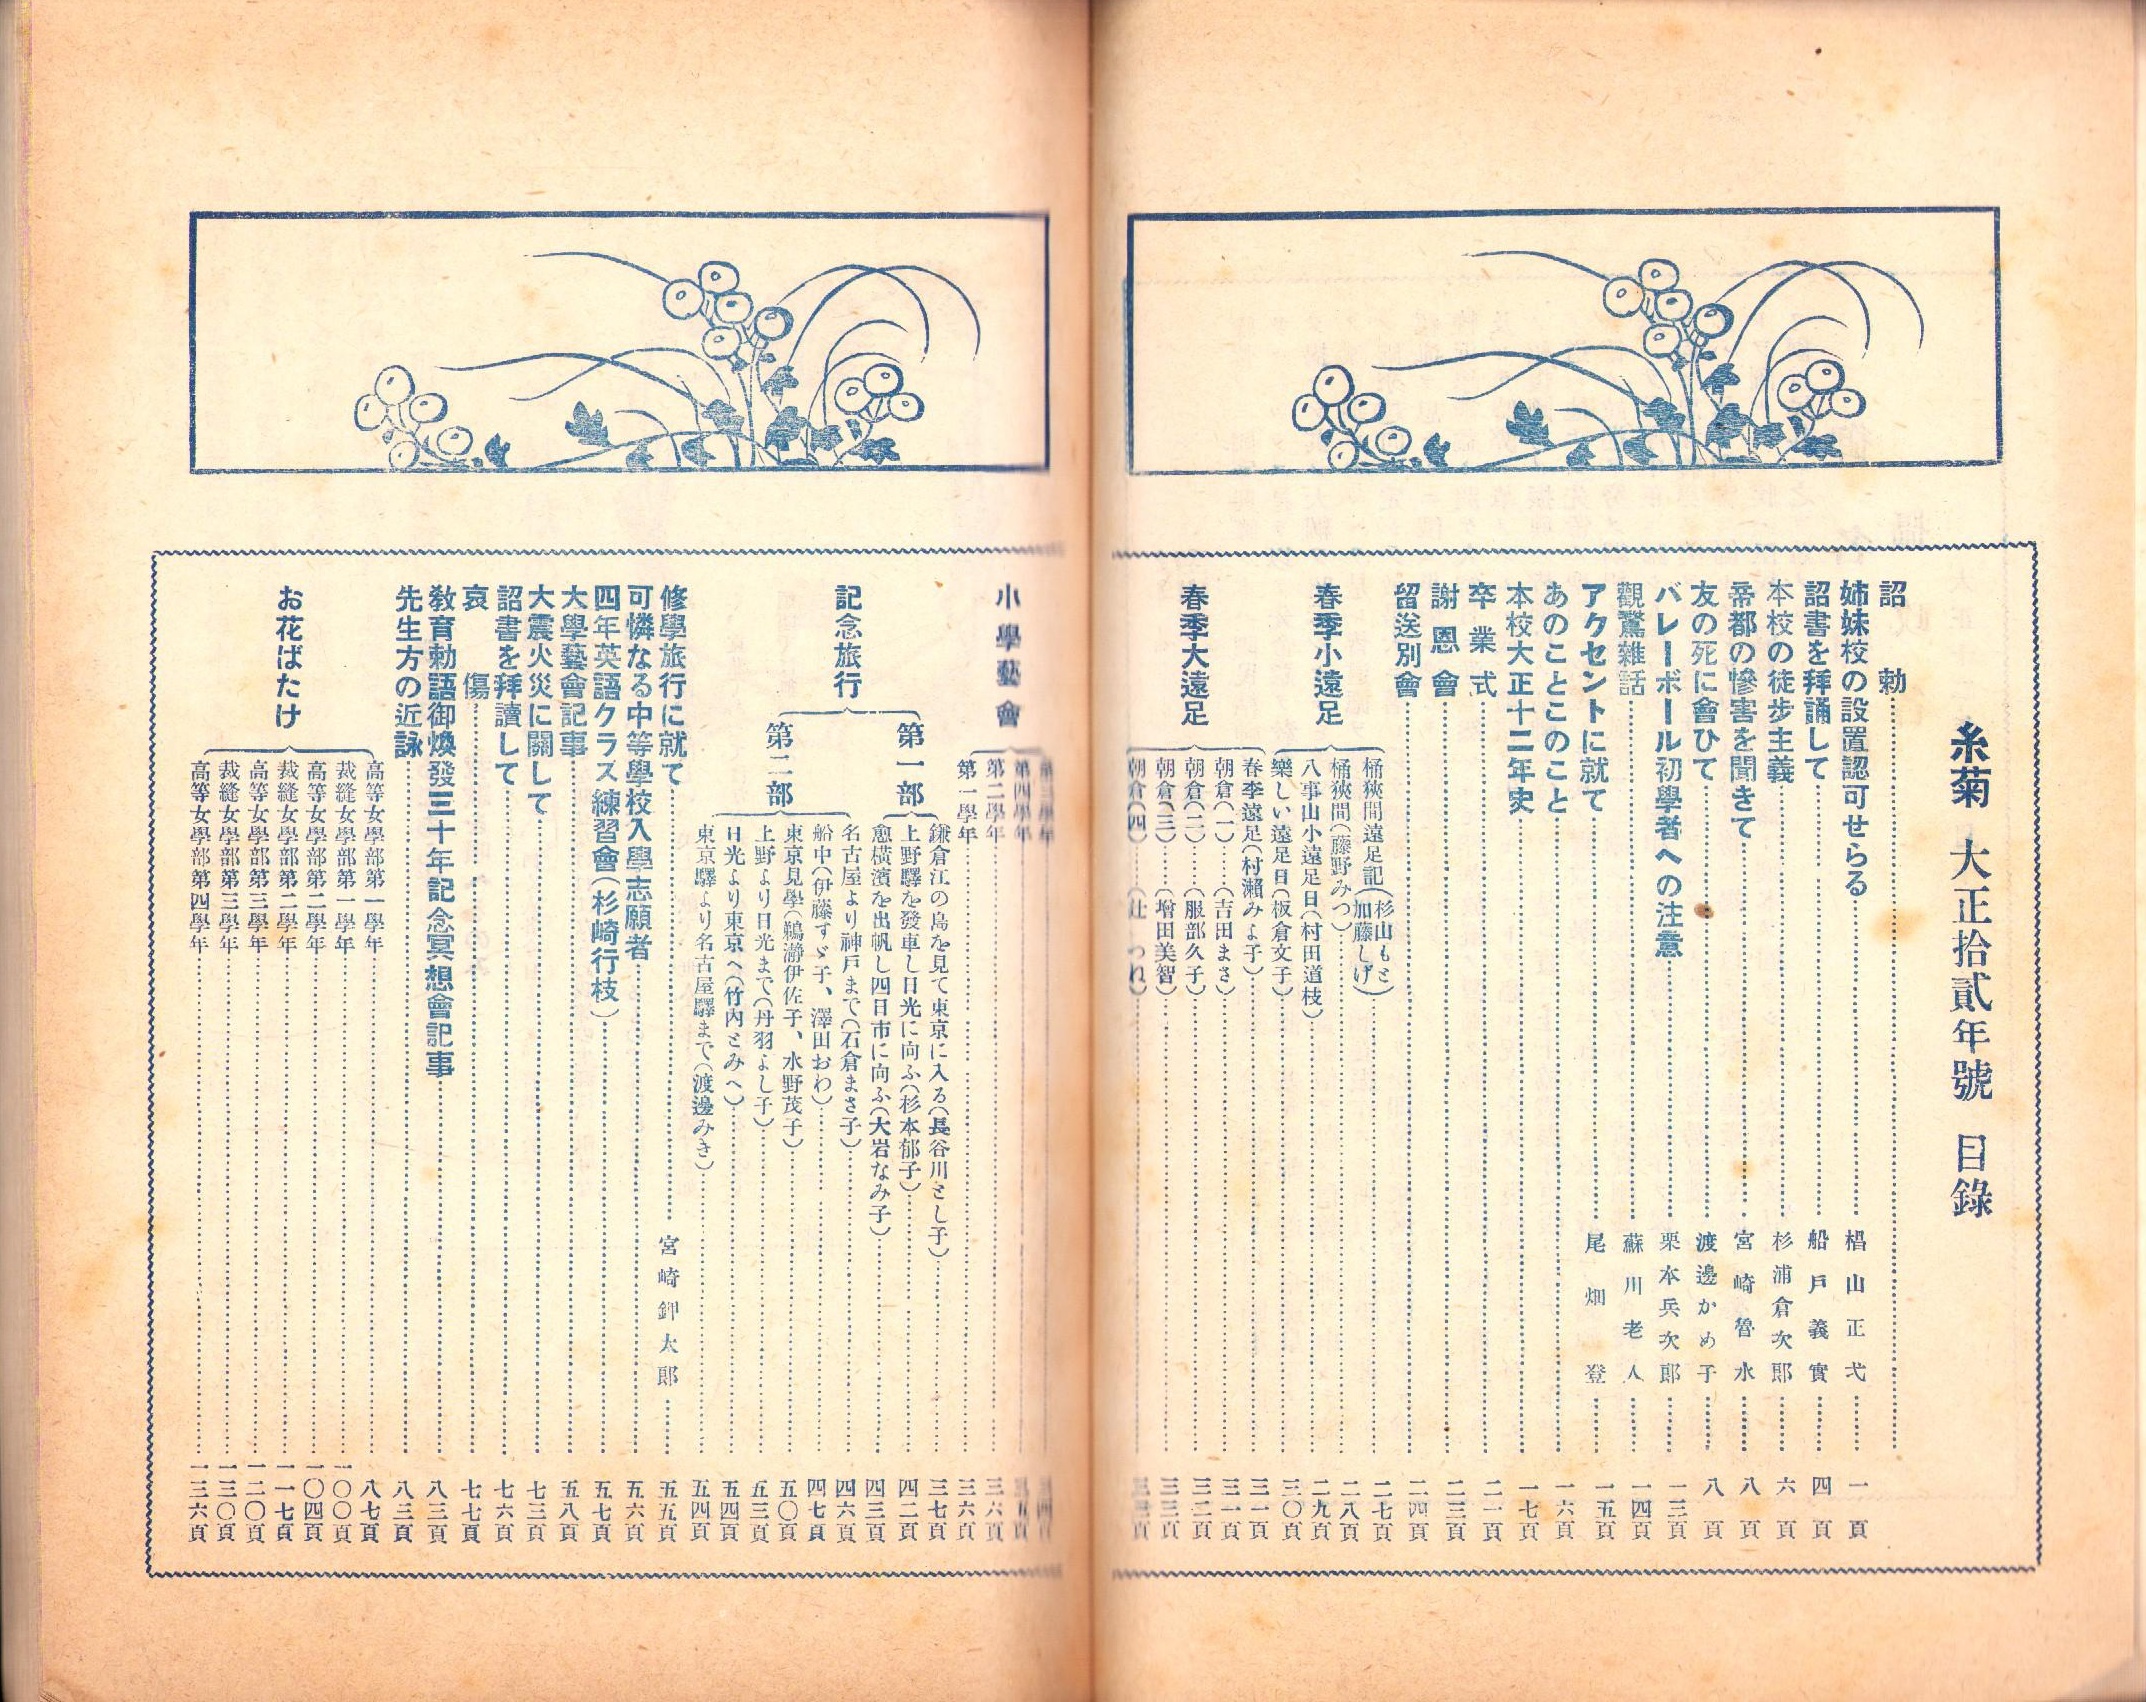 糸菊 大正拾貳年號 目錄
詔勅
姉妹校の設置認可せらる 椙山正弌 一頁
詔書を拜誦して 船戸義實 四頁
本校の徒步主義 杉浦倉次郎 六頁
帝都の慘害を聞きて 宮崎魯水 八頁
友の死に會ひて 渡邊かめ子 八頁
バレーボール初學者への注意 栗本兵次郎 一三頁
觀鵞雜話 蘇川老人 一四頁
アクセントに就て 尾畑登 一五頁
あのことこのこと 一六頁
本校大正十二年史 一七頁
卒業式 二一頁
謝恩會 二三頁
留送別會 二四頁
春季小遠足
桶狹間遠足記(杉山もと 加藤しげ) 二七頁
桶狹間(藤野みつ) 二八頁
八事山小遠足日(村田道枝) 二九頁
樂しい遠足日(板倉文子) 三〇頁
春季大遠足
春季遠足(村瀨みよ子) 三一頁
朝倉(一)(吉田まさ) 三一頁
朝倉(二)(服部久子) 三二頁
朝倉(三)(增田美智) 三三頁
朝倉(四)(辻 つれ)
小學藝會
第四學年
第二學年 三六頁
第一學年 三六頁
記念旅行
第一部
鎌倉江の島を見て東京に入る(長谷川とし子) 三七頁
上野驛を發車し日光に向ふ(杉本郁子) 四二頁
愈橫濱を出帆し四日市に向ふ(大岩なみ子) 四三頁
第二部
名古屋より神戸まで(石倉まさ子) 四六頁
船中(伊藤すゞ子、澤田おわ) 四七頁
東京見學(鵜瀞伊佐子、水野茂子) 五〇頁
上野より日光まで(丹羽よし子) 五三頁
日光より東京へ(竹內とみへ) 五四頁
東京驛より名古屋驛まで(渡邊みき) 五四頁
修學旅行に就て 宮崎鉀太郎 五五頁
可憐なる中等學校入學志願者 五六頁
四年英語クラス練習會(杉崎行枝) 五七頁
大學藝會記事 五八頁
大震火災に關して 七三頁
詔書を拜讀して 七六頁
哀傷 七七頁
敎育勅語御煥發三十年記念冥想會記事 八三頁
先生方の近詠 八三頁
お花ばたけ
高等女學部第一學年 八七頁
裁縫女學部第一學年 一〇〇頁
高等女學部第二學年 一〇四頁
裁縫女學部第二學年 一一七頁
高等女學部第三學年 一二〇頁
裁縫女學部第三學年 一三〇頁
高等女學部第四學年 一三六頁